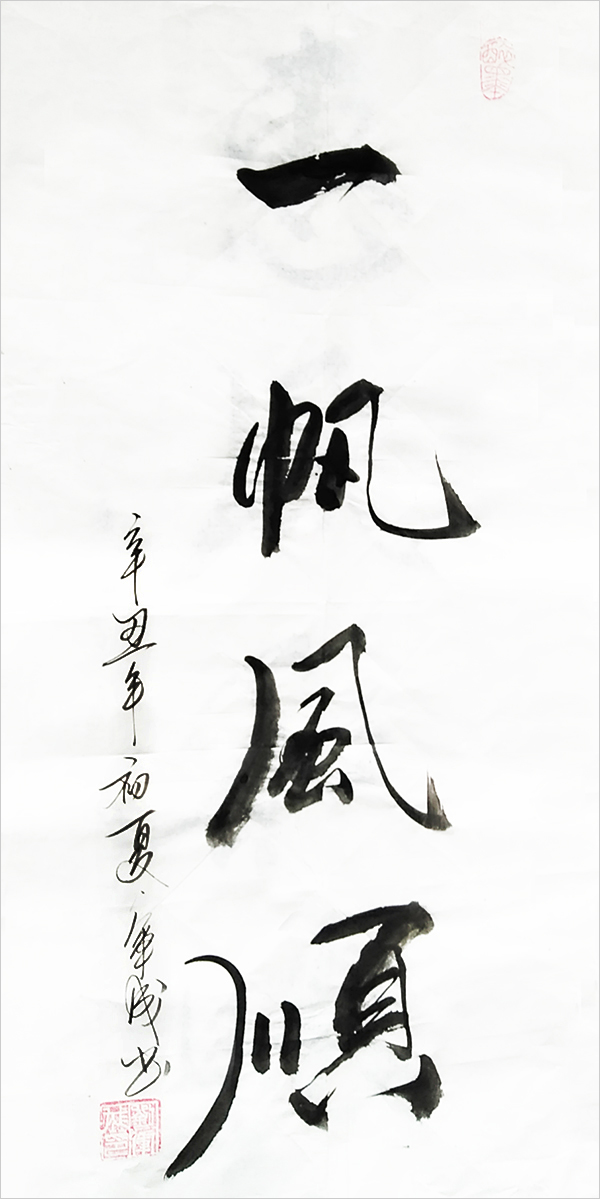 一帆風順
辛丑年初夏